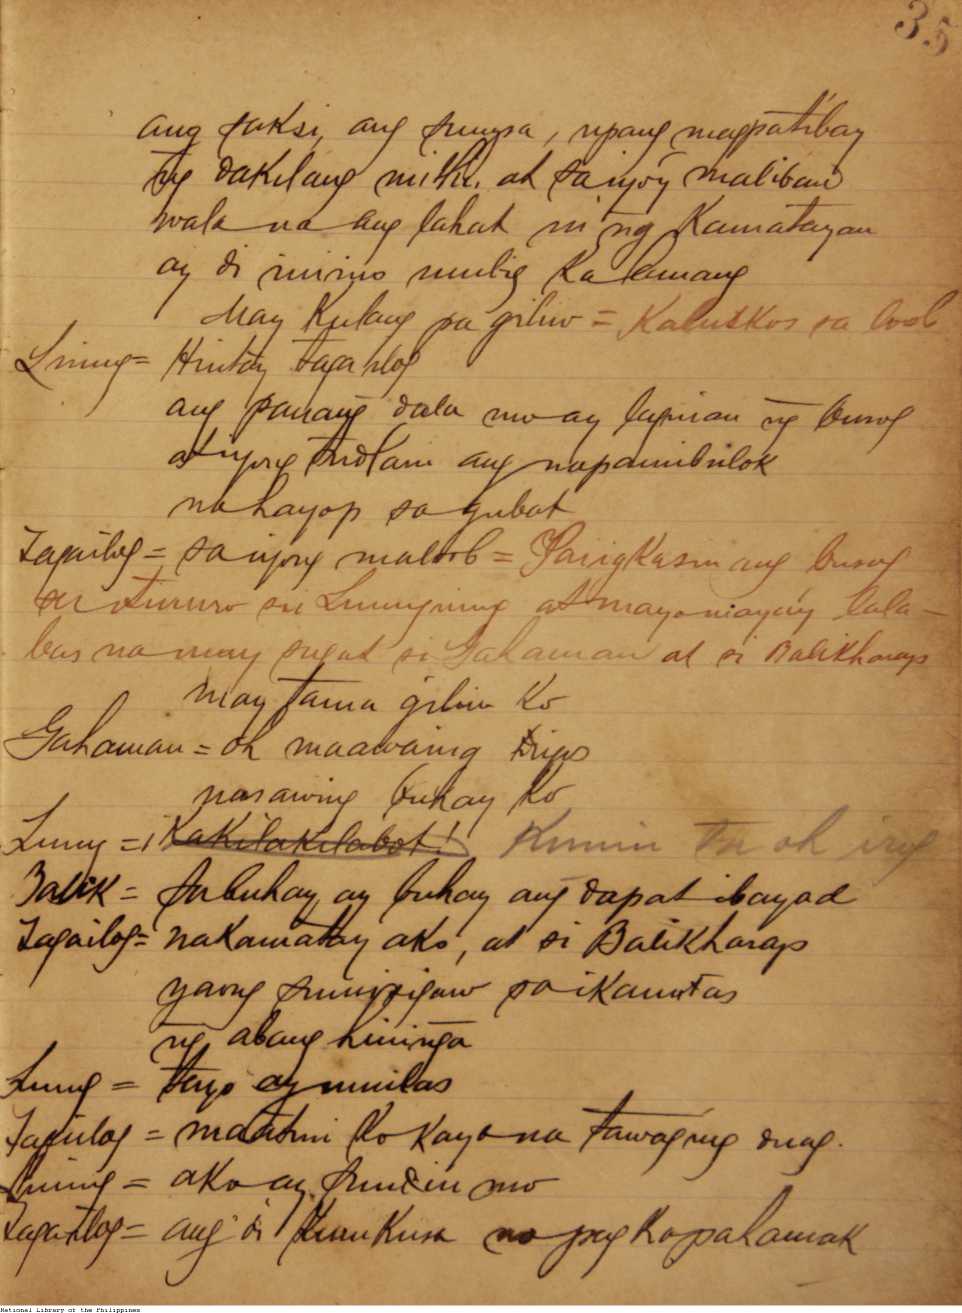 35
ang saksi, ang sumpa, upang magpatibay
ng dakilang mithi, at sa iyo'y maliban
wala na ang lahat ni ng Kamatayan
ay di iniino muling Ka lamang
May Kulang pa giliw = Kaluskos sa loob
Luning = Hintay Taga ilog
ang panang dala mo ay lapian ng busog
at iyong tudlain ang napaimbulok
na hayop sa gubat
Tagailog = sa iyong maloob = Pangkasin ang busog
sa ituturo ni Luningning at mayamaya'y lala-
bas na may sugat si Gahaman at si Balikharap
may tama giliw Ko
Gahaman = oh maawaing Dios
nasawing buhay Ko
Lung = ¡Kakilakilabot! Kunin ta oh irog
Balik = sa buhay ay buhay ang dapat ibayad
Tagailog = nakamatay ako, at si Balikharap
yaong sumisigaw sa ikautas
ng abang hininga
Lung = tayo ay umilas
Tagailog = maatim Ko kaya na tawaging duag.
Luning = ako ay sundin mo
Tagailog = ang di kinukusa na pagkapahamak
National Library of the Philippines